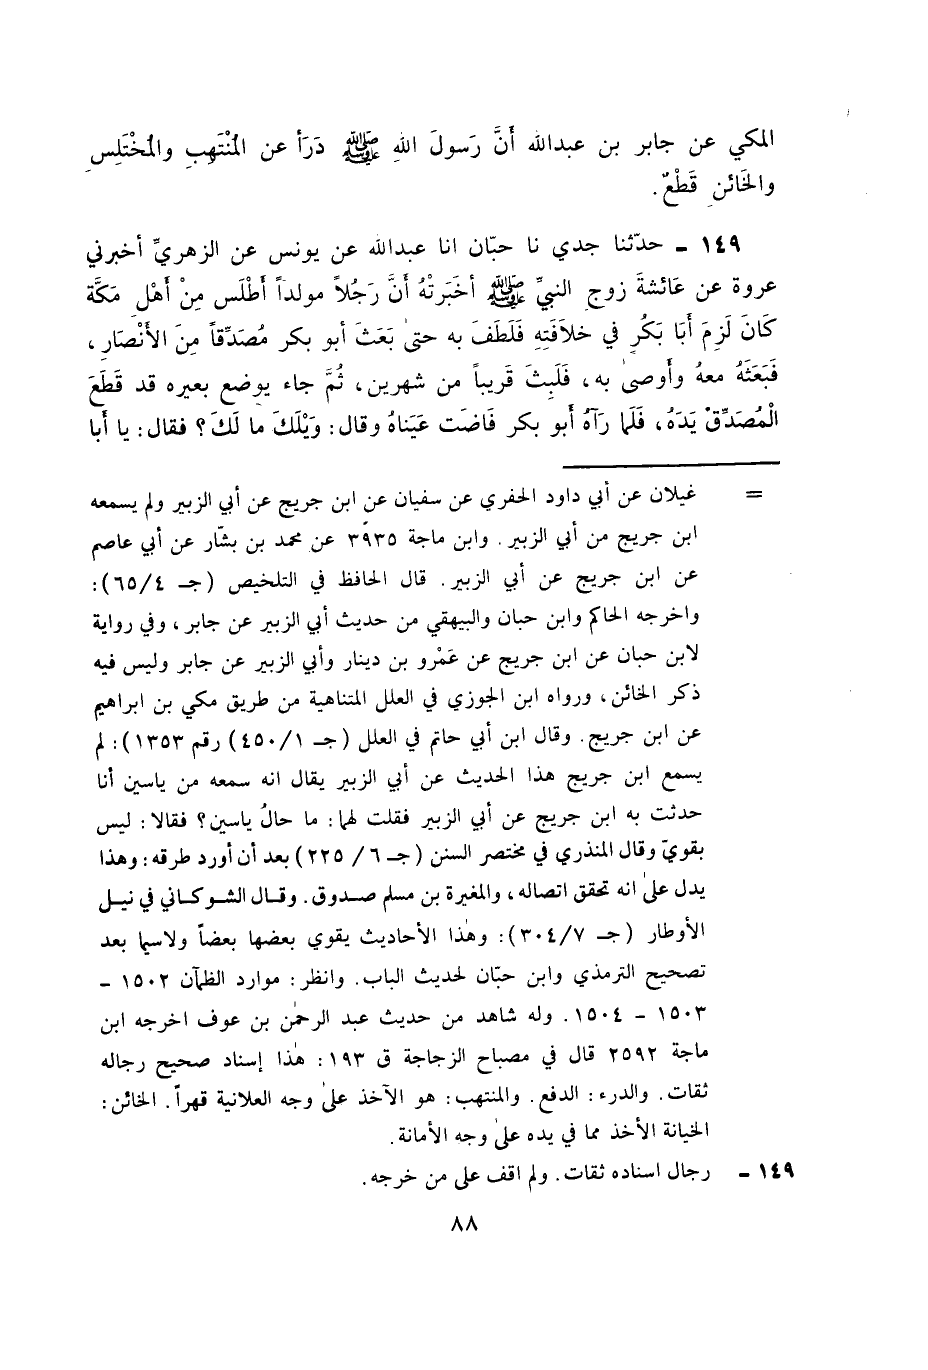 المكي عن جابر بن عبدالله أَنَّ رَسولَ اللهِ ﷺ دَرَأ عن المُنْتَهِبِ والمُخْتَلِسِ
والخَائنِ قَطْعٌ.
١٤٩ - حدّثنا جدي نا حبّان انا عبدالله عن يونس عن الزهريِّ أخبرني
عروة عن عَائشةَ زوجِ النبيِّ ﷺ أخَبَرتْهُ أنَّ رَجُلاً مولداً أطْلَس مِنْ أهْلِ مَكَّة
كَانَ لَزِمَ أبَا بَكُرٍ في خلاَفَتِهِ فَلَطَفَ به حتىٰ بَعَثَ أبو بكر مُصَدِّقاً مِنَ الأَنْصَارِ،
فَبَعَثَهُ معهُ وأوصىٰ به، فَلَبِثَ قَريباً من شهرين، ثُمَّ جاء يوضع بعيره قد قَطَعَ
الْمُصَدِّقْ يَدَهُ، فَلَما رَآهُ أبو بكر فَاضَت عيَناهُ وقال: وَيْلَكَ ما لَكَ؟ فقال: يا أبا
= غيلان عن أبي داود الحفري عن سفيان عن ابن جريج عن أبي الزبير ولم يسمعه
ابن جريج من أبي الزبير. وابن ماجة ٣٩٣٥ عن محمد بن بشّار عن أبي عاصم
عن ابن جريج عن أبي الزبير. قال الحافظ في التلخيص (جـ ٤/٦٥):
واخرجه الحاكم وابن حبان والبيهقي من حديث أبي الزبير عن جابر، وفي رواية
لابن حبان عن ابن جريج عن عَمْرو بن دينار وأبي الزبير عن جابر وليس فيه
ذكر الخائن، ورواه ابن الجوزي في العلل المتناهية من طريق مكي بن ابراهيم
عن ابن جريج. وقال ابن أبي حاتم في العلل (جـ ١/٤٥٠) رقم ١٣٥٣): لم
يسمع ابن جريج هذا الحديث عن أبي الزبير يقال انه سمعه من ياسين أنا
حدثت به ابن جريج عن أبي الزبير فقلت لهما: ما حالُ ياسين؟ فقالا: ليس
بقويّ وقال المنذري في مختصر السنن (جـ ٦/ ٢٢٥) بعد أن أورد طرقه: وهذا
يدل علىٰ انه تحقق اتصاله، والمغيرة بن مسلم صدوق. وقال الشوكاني في نيل
الأوطار (جـ ٧/٣٠٤): وهٰذا الأحاديث يقوي بعضها بعضاً ولاسيما بعد
تصحيح الترمذي وابن حبّان لحديث الباب. وانظر: موارد الظمآن ١٥٠٢ -
١٥٠٣ - ١٥٠٤. وله شاهد من حديث عبد الرحمٰن بن عوف اخرجه ابن
ماجة ٢٥٩٢ قال في مصباح الزجاجة ق ١٩٣: هٰذا إسناد صحيح رجاله
ثقات. والدرء: الدفع. والمنتهب: هو الآخذ علىٰ وجه العلانية قهراً. الخائن:
الخيانة الأخذ مما في يده علىٰ وجه الأمانة.
١٤٩ - رجال اسناده ثقات. ولم اقف على من خرجه.
٨٨